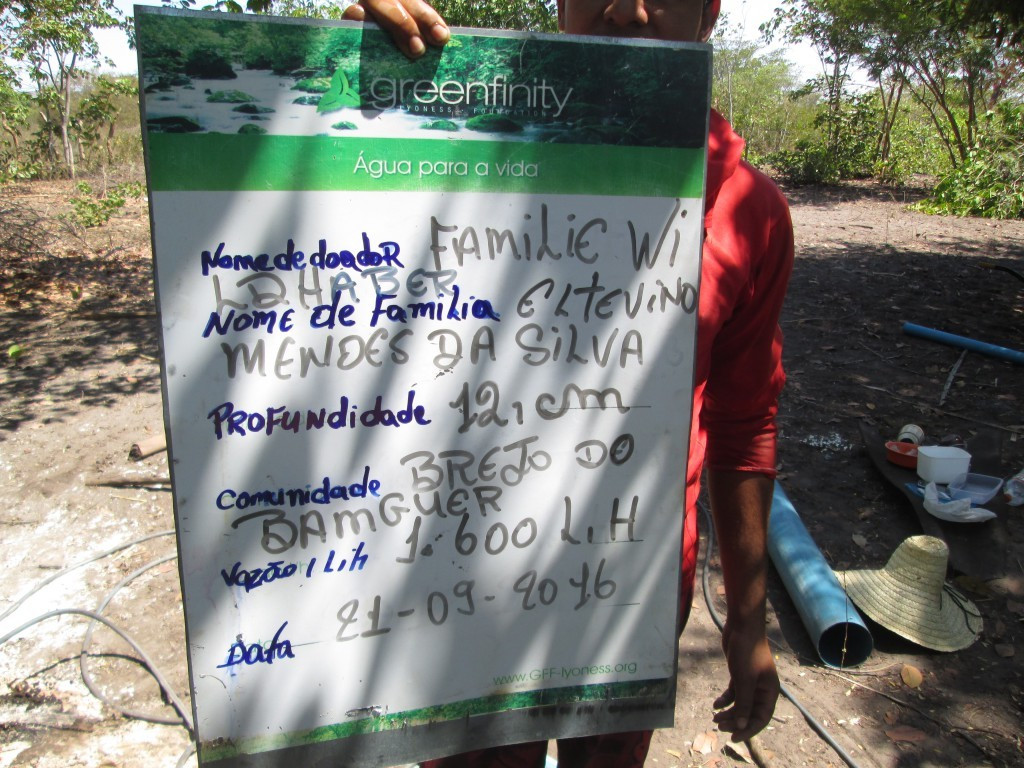 greenfinity
LYONESS FOUNDATION
Água para a vida
Nome de doadoR FAMILIE Wi
LDHABER
NOME de Familia ELTEViNO
MENDES DA SiLVA
PROFUNDidade 12, cm
comunidade BREJO DO
BAMGUER
Vazão, L,h 1.600 L,H
Data 21-09-2016
www.GFF-lyoness.org